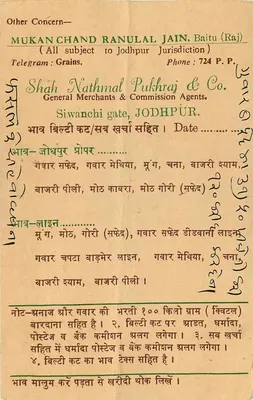 Other Concern—
MUKAN CHAND RANULAL JAIN, Baitu (Raj)
(All subject to Jodhpur Jurisdiction)
Telegram : Grains. Phone : 724 P. P.
Shah Nathmal Pukhraj & Co.
General Merchants & Commission Agents.
Siwanchi gate, JODHPUR.
भाव बिल्टी कट/सब खर्चा सहित । Date............
भाव-जोधपुर प्रोपर
गंवार सफेद, गवार मेथिया, मूंग, चना, बाजरी श्याम,
बाजरी पीली, मोठ काबरा, मोठ गोरी (सफेद)
भाव—लाइन
मूंग, मोठ, गोरी (सफेद), गवार सफेद डीडवानी लाइन,
गवार चपटा बाड़मेर लाइन, गवार मेथिया, चना,
बाजरी श्याम, बाजरी पीली ।
नोट—अनाज और गवार की भरती १०० किलो ग्राम (क्विंटल)
बारदाना सहित है । २. बिल्टी कट पर ब्राडत, धर्मादा,
पोस्टेज व बैंक कमीशन अलग लगेगा । ३. सब खर्चा
सहित में धर्मादा पोस्टेज व बैंक कमीशन अलग लगेगा ।
४. बिल्टी कट का भाव टेक्स सहित है ।
भाव मालुम करें पड़ता से खरीदी थोक लिखें ।